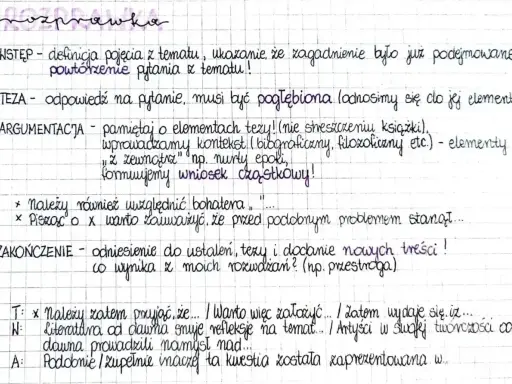 rozprawka
WSTĘP - definicja pojęcia z tematu, ukazanie, że zagadnienie było już podejmowane
powtórzenie pytania z tematu!
TEZA - odpowiedź na pytanie, musi być pogłębiona (odnosimy się do jej element
ARGUMENTACJA - pamiętaj o elementach tezy! (nie streszczeniu książki),
wprowadzamy kontekst (biograficzny, filozoficzny etc.) - elementy
„z zewnątrz" np. nurty epoki,
formułujemy wniosek cząstkowy!
* Należy również uwzględnić bohatera „ "...
* Pisząc o x warto zauważyć, że przed podobnym problemem stanął...
ZAKOŃCZENIE - odniesienie do ustaleń, tezy i dodanie nowych treści!
co wynika z moich rozważań? (np. przestroga)
T: * Należy zatem przyjąć, że... / Warto więc założyć... / Zatem wydaje się, iż...
W: Literatura od dawna snuje refleksje na temat... / Artyści w swojej twórczości od
dawna prowadzili namysł nad...
A: Podobnie / zupełnie inaczej ta kwestia została zaprezentowana w...